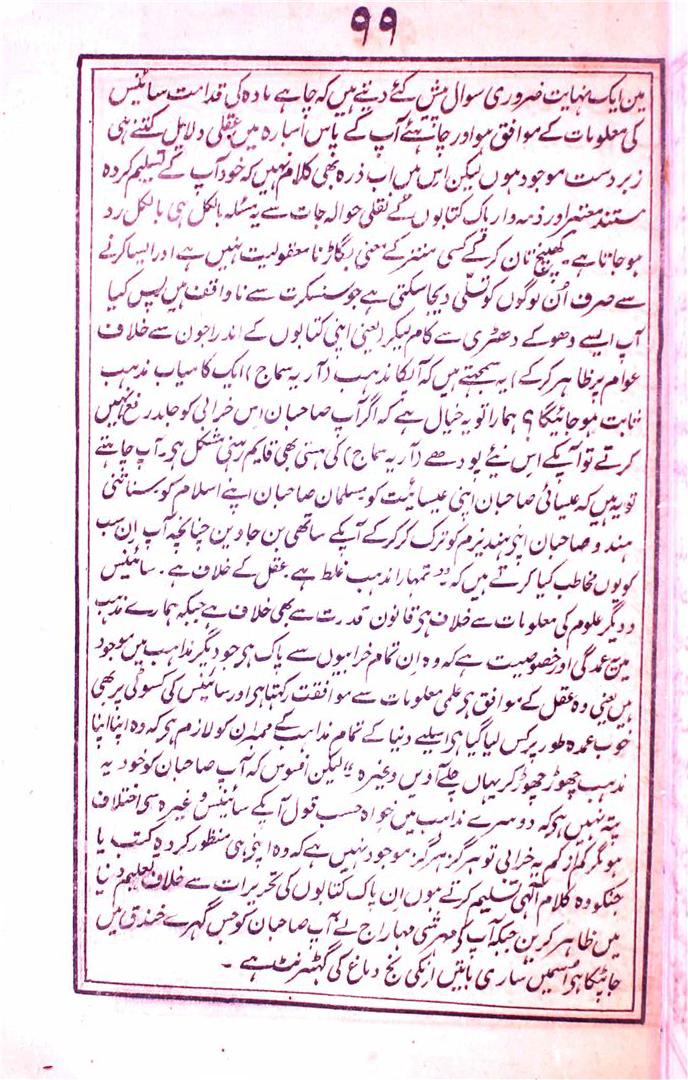 ۹۹
مین ایک نہایت ضروری سوال پیش کئے دیتے ہیں کہ چاہے مادہ کی قدامت سائنس
کی معلومات کے موافق ہو اور چاہئے آپ کے پاس اسبارہ میں عقلی دلایل کتنے ہی
زبردست موجود ہوں لیکن اس میں اب ذرہ بھی کلام نہیں کہ خود آپ کے تسلیم کردہ
مستند معتبر اور ذمہ وار پاک کتابوں کے نقلی حوالہ جات سے یہ مسئلہ بالکل ہی بالکل رد
ہو جاتا ہے۔ کھینچ تان کر کے کسی منتر کے معنی بگاڑنا معقولیت نہیں ہے اور ایسا کرنے
سے صرف اُن لوگوں کو تسلّی دیجا سکتی ہے جو سنسکرت سے ناواقف ہیں پس کیا
آپ ایسے دھوکے دھڑی سے کام لیکر (یعنی اپنی کتابوں کے اندراجون سے خلاف
عوام پر ظاہر کرکے) یہ سمجھتے ہیں کہ آپکا مذہب (آریہ سماج) ایک کامیاب مذہب
ثابت ہو جائیگا؟ ہمارا تو یہ خیال ہے کہ اگر آپ صاحبان اس خرابی کو جلد رفع نہیں
کرتے تو آپکے اس نئے پودھے (آریہ سماج) کی ہستی بھی قایم رہنی مشکل ہی۔ آپ چاہتے
تو یہ ہیں کہ عیسائی صاحبان اپنی عیسائیت کو مسلمان صاحبان اپنے اسلام کو سناتنی
ہندو صاحبان اپنی ہندیزم کو ترک کر کرکے آپکے ساتھی بن جاوین چنانچہ آپ اِن سب
کو یوں مخاطب کیا کرتے ہیں کہ "تمہارا مذہب غلط ہے عقل کے خلاف ہے۔ سائنس
و دیگر علوم کی معلومات سے خلاف ہی قانون قدرت سے بھی خلاف ہے جبکہ ہمارے مذہب
مین یہ عمدگی اور خصوصیت ہے کہ وہ اِن تمام خرابیوں سے پاک ہی جو دیگر مذاہب میں موجود
ہیں یعنی وہ عقل کے موافق ہی علمی معلومات سے موافقت رکہتا ہی اور سائنس کی کسوٹی پر بھی
خوب عمدہ طور پر کس لیا گیا ہی اسلیے دنیا کے تمام مذاہب کے ممبرن کو لازم ہی کہ وہ اپنا اپنا
مذہب چھوڑ چھوڑ کر یہاں چلے آؤیں وغیرہ" لیکن افسوس کہ آپ صاحبان کو خود یہ
پتہ نہیں ہی کہ دوسرے مذاہب میں خواہ حسب قول آپکے سائنس وغیرہ سی اختلاف
ہو مگر کم از کم یہ خرابی تو ہرگز ہرگز موجود نہیں ہے کہ وہ اپنی ہی منظور کردہ کتب یا
جنکو وہ کلام الٰہی تسلیم کرتے ہوں ان پاک کتابوں کی تحریرات سے خلاف تعلیم دنیا
میں ظاہر کریں جبکہ آپ کی مہرشی مہاراج نے آپ صاحبان کو جس گہرے خندق میں
جا پٹکا ہی اُسمیں ساری باتیں اُنکی نج دماغ کی گھڑنت ہے۔